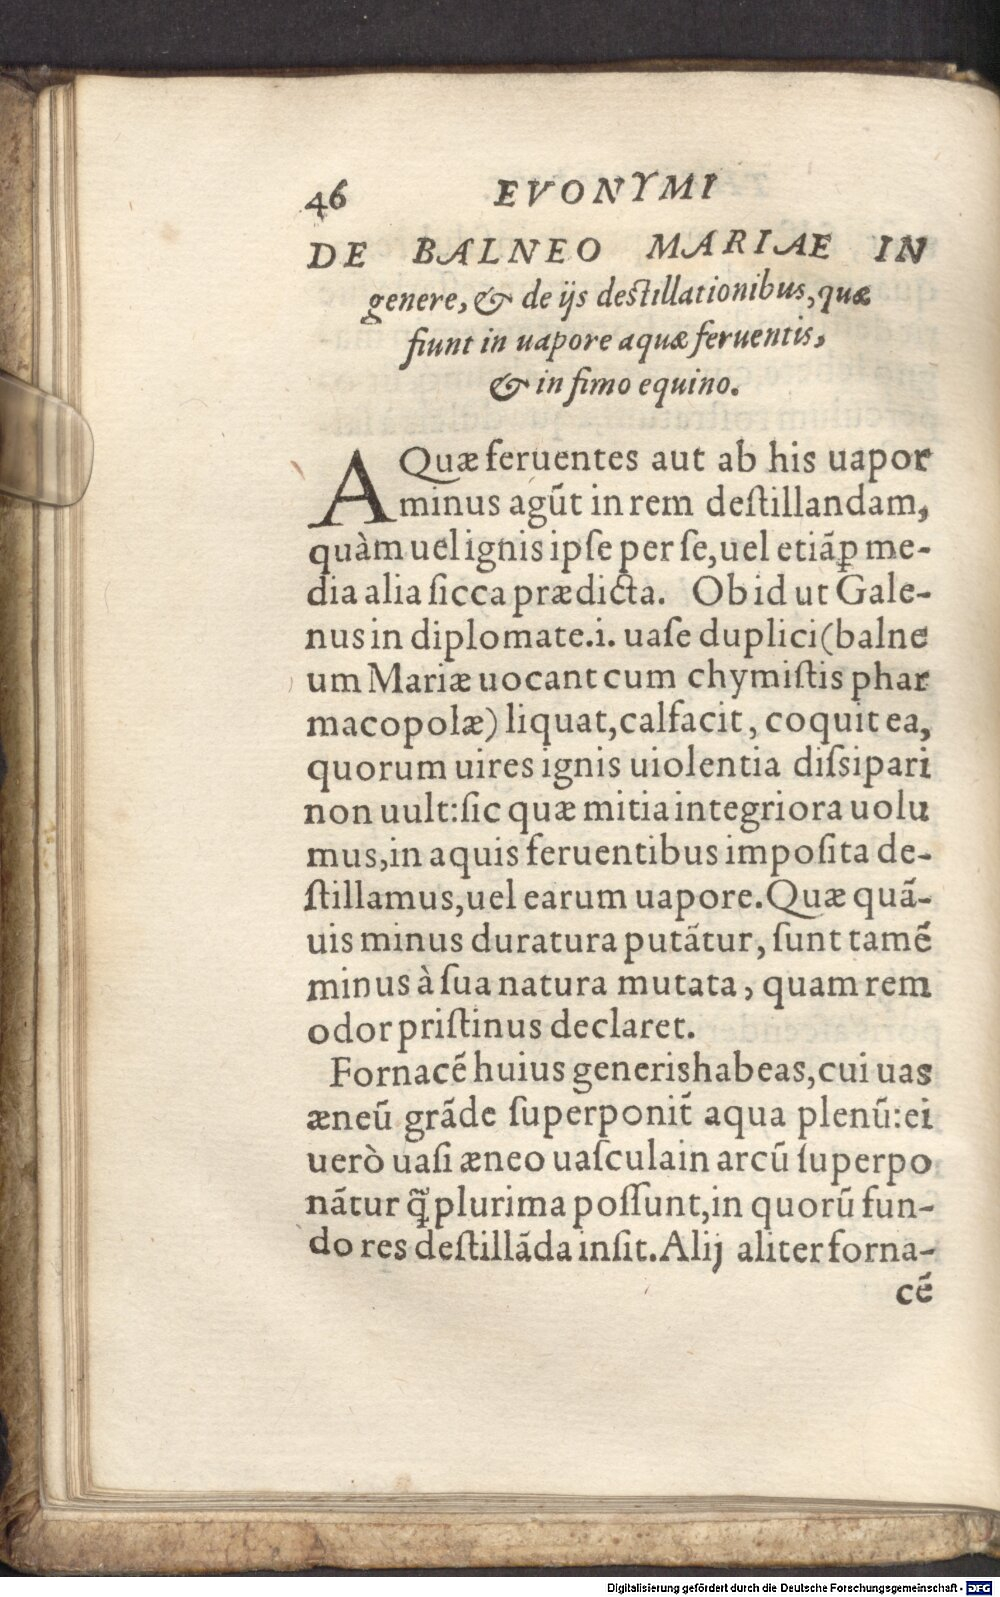 46 EVONYMI
DE BALNEO MARIAE IN
genere, & de ijs destillationibus, quæ
fiunt in uapore aquæ feruentis,
& in fimo equino.
AQuæ feruentes aut ab his uapor
minus agūt in rem deſtillandam,
quàm uel ignis ipſe per ſe, uel etiā ꝑ me-
dia alia ſicca prædicta. Ob id ut Gale-
nus in diplomate.i. uaſe duplici (balne
um Mariæ uocant cum chymiſtis phar
macopolæ) liquat, calfacit, coquit ea,
quorum uires ignis uiolentia diſsipari
non uult: ſic quæ mitia integriora uolu
mus, in aquis feruentibus impoſita de-
ſtillamus, uel earum uapore. Quæ quā-
uis minus duratura putātur, ſunt tamē
minus à ſua natura mutata, quam rem
odor priſtinus declaret.
Fornacē huius generis habeas, cui uas
æneū grāde ſuperponit᷑ aqua plenū: ei
uerò uaſi æneo uaſcula in arcū ſuperpo
nātur q̃ plurima poſſunt, in quorū fun-
do res deſtillāda inſit. Alij aliter forna-
cē
Digitalisierung gefördert durch die Deutsche Forschungsgemeinschaft - DFG